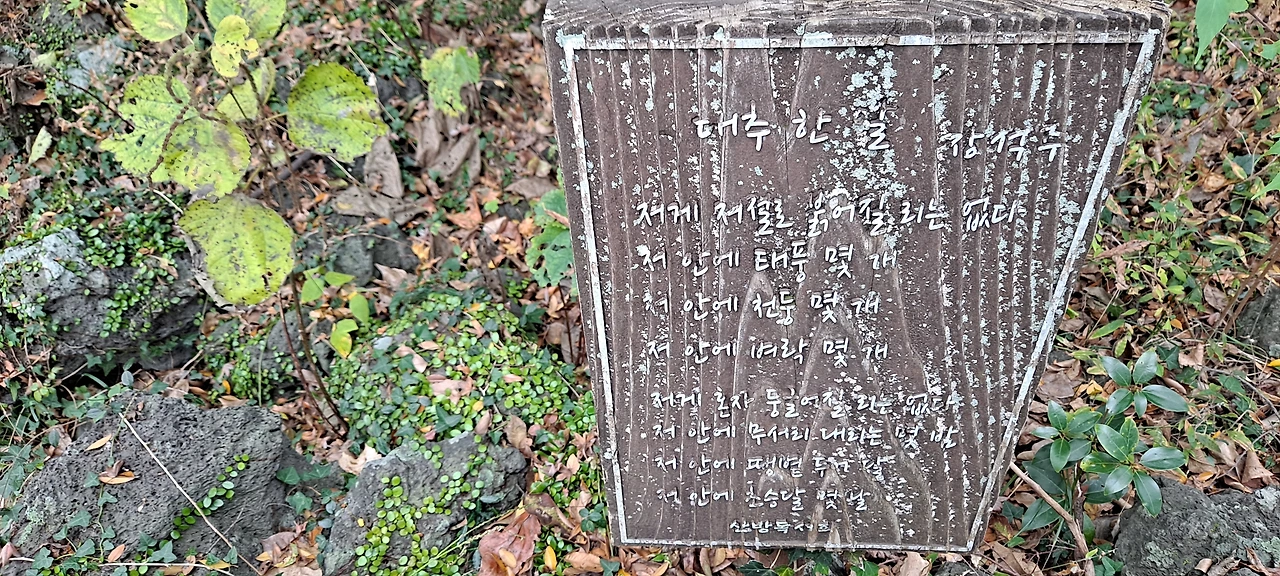 대추 한 알 장석주
저게 저절로 붉어질 리는 없다
저 안에 태풍 몇 개
저 안에 천둥 몇 개
저 안에 벼락 몇 개
저게 혼자 둥글어질 리는 없다
저 안에 무서리 내리는 몇 밤
저 안에 땡볕 두어 달
저 안에 초승달 몇 날